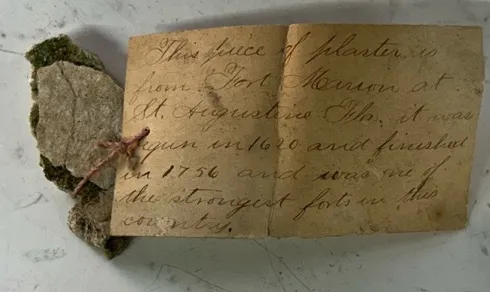 This piece of plaster is
from Fort Merion at
St. Augustine Fla. it was
begun in 1620 and finished
in 1756 and was one of
the strongest forts in this
country.